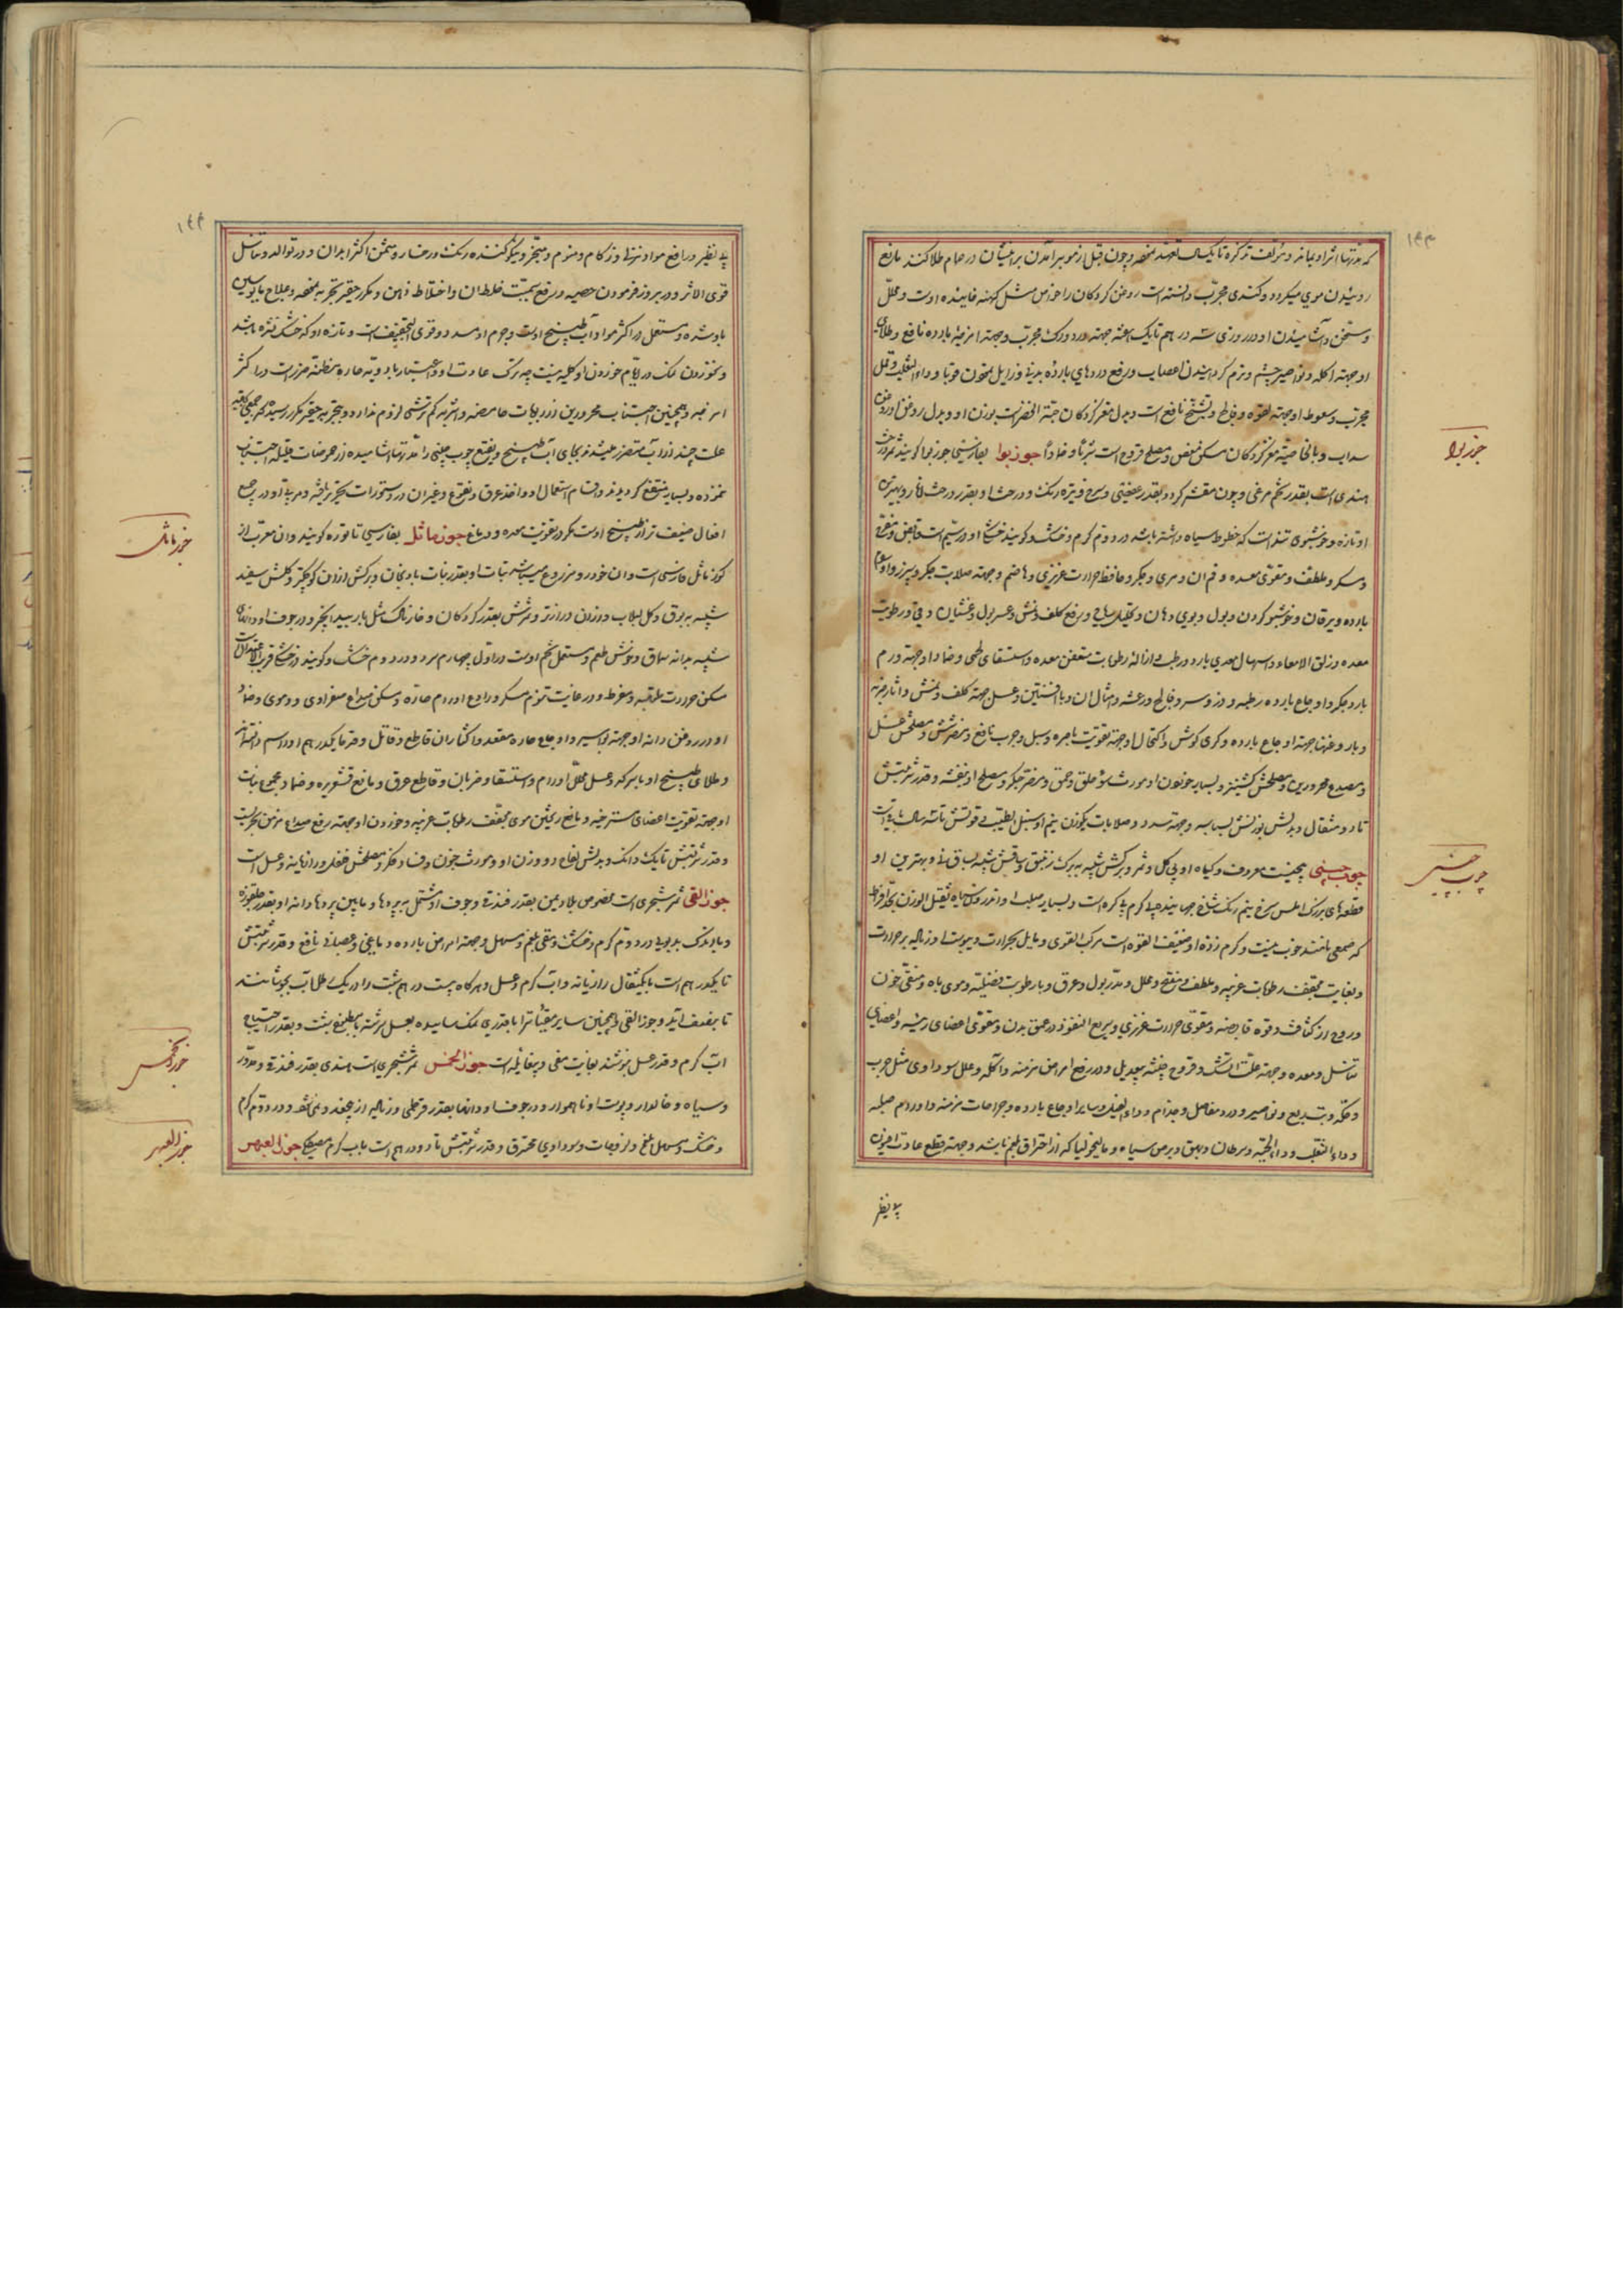 ۱۴۳
که مدتها اثر او بماند و مؤلف تذکره تا یک
روئیدن موی میکردد وکندی مجرب دانسته است روغن کردکان را خواص مثل کهنه
و مسخن و آشامیدن او در روزی سه درهم تا یک هفته جهته درد ورک مجرب و جهته امزجه بارده نافع و طلای
او جهته اکله و نواصیر چشم و نرم کردانیدن اعصاب و رفع دردهای بارده
مجرب و سعوط او جهته لقوه و فالج و تشنج نافع است و بدل مغز کردکان حبة الخضراست بوزن او و بدل روغن او روغن
سداب و بالخاصیة مغز کردکان مسکن مغص و مصلح قروح است شربا و ضمادا جوز بوا بفارسی جوز بویا کویند ثمر درخت
جوز بوا
هندی است بقدر تخم مرغی و چون مقشر کردد بقدر عفصی و سرخ و تیره رنک و درخت او بقدر درخت انار و بهترین
او تازه و خوشبوی تند است که خطوط سیاه داشته باشد در دوم کرم و خشک و کویند خشکی او در سیم است قابض و مفرح
و مسکر و ملطف و مقوی معده و فم آن و مری و جکر و حافظ حرارت غریزی و هاضم و جهته صلابت جکر و سپرز و اورام
بارده و یرقان و خوشبو کردن و بول و بوی دهان و تحلیل ریاح و رفع کلف و نمش و عسر بول و غثیان و قی و رطوبت
معده و زلق الامعاء و اسهال معدی بارد و رطب و ازاله رطوبات متعفن معده و استسقای لحمی و ضماد او جهته ورم
بارد جکر و اوجاع بارده رطبه و فالج و رعشه و امثال آن و با افسنتین و عسل جهته کلف و نمش و آثار ضربه
و با روغنها جهته اوجاع بارده و کری کوش و اکتحال او جهته تقویت باصره و سبل و جرب نافع و مضر شش و مصلحش عسل
و مصدع محرورین و مصلحش کشنیز و بسیار خوردن او مورث سوء خلق و حمق و مضر جکر و مصلح او بنفشه و قدر شربتش
تا دو مثقال و بدلش بوزنش بسباسه و جهته سدد و صلابات یکوزن و نیم او سنبل الطیب است و قوتش تا سه سال باقیست
جوب چینی بیخیست معروف و کیاه او بی کل و ثمر و برکش شبیه به برک زنبق و ساقش شبیه بساق نی و بهترین او
چوب چینی
قطعهای بزرک املس سرخ نیم رنک
که صمغی مانند خوب نیست و کرم زده او ضعیف القوه است مرکب القوی و مایل بحرارت و یبوست
و بغایت مجفف رطوبات غریبه و ملطف و مفتح و محلل و مدر بول و عرق و با رطوبت فضلیه و محرک باه و منقی خون
و روح از کثافت و قوه قابضه و مقوی حرارت غریزی و سریع النفوذ در عمق بدن و مقوی اعضای رئیسه و اعضای
تناسل و معده و جهته علت آتشک و قروح خبیثه بیعدیل و در رفع امراض مزمنه و آکله و علل سوداوی مثل جرب
و حکه و نواصیر و درد مفاصل و جذام و داء الفیل و سایر اوجاع بارده و جراحات مزمنه و اورام صلبه
و داء الثعلب و داء الحیه و سرطان و بهق و برص سیاه و مالیخولیا که از احتراق بلغم باشد و جهته قطع عادت افیون
بی نظیر
۱۴۴
بی نظیر و رافع مواد نزلی و زکام و منوم و مبخر و نیکو کننده رنک رخسار و مسمن اکثر ابدان و در توالد و تناسل
قوی الاثر و در بروز فرمودن حصبه و رفع سمیت خلطان و اختلاط ذهن و مکرر حقیر بتجربه
باد شده و مستعمل در اکثر مواد آب طبیخ اوست و جرم او مسدد و قوی التجفیف است و تازه او که خشک نشده باشد
و نخوردن نمک در ایام خوردن او کلیه نیست چه ترک عادت
امزجه و همچنین اجتناب محرورین از ربوبات حامضه و اشربه کم ترشی لزوم ندارد و بتجربه حقیر مکرر رسیده که جمعی
علت چند از آب متضرر میشدند بجای آب طبیخ و نقیع چوب چینی را مدتها آشامیده از حموضات قلیله اجتناب
نموده و بسیار منتفع کردیدند و اقسام استعمال او و اخذ عرق و نقوع و غیر آن در دستورات تحریر یافته و مربای او در جمیع
افعال ضعیف تر از طبیخ اوست مکر در تقویت معده و دماغ جوز ماثل بفارسی تاتوره کویند و آن معرب از
جوز ماثل
کوز ماثل فارسی است و آن خودرو و مزروع میباشد نبات او بقدر نبات بادنجان و برکش از آن کوچکتر و کلش سفید
شبیه به بوق و کل لبلاب و از آن درازتر و ثمرش بقدر کردکان و خارناک مثل بار بید انجیر و در جوف او دانهای
شبیه بدانه سماق و خوش طعم و مستعمل تخم اوست در اول چهارم سرد و در دوم خشک و کویند در خشکی قریب الاعتدال است
مسکن حرارت ملتهبه و مفرط و در غایت تنویم و مسکر و رادع اورام حاره و مسکن صداع صفراوی و دموی و ضماد
او در روغن دانه او جهته بواسیر و اوجاع حاره مقعد و اکثار آن قاطع و قاتل
و طلای طبیخ او با سرکه و عسل محلل اورام و استسقا و ضربان و قاطع عرق و مانع قشعریره و ضماد مجموع نبات
او جهته تقویت اعضای مسترخیه و مانع ریختن موی مجفف رطوبات غریبه و خوردن او جهته رفع صداع مزمن مجربست
و قدر شربتش تا یک دانک و بدلش لفاح دو وزن او و مورث جنون و فساد فکر و مصلحش فلفل و رازیانه و عسل است
جوز القی ثمر شجری است مخصوص بلاد یمن بقدر فندقی و جوف او مشتمل به پردها و مابین پردها دانه او بقدر
و با اندک بدبویی در دوم کرم و خشک و مقی بلغم و مسهل و جهته امراض بارده دماغی و عصبانی نافع و قدر شربتش
تا یکدرهم است با یکمثقال رازیانه و آب کرم و عسل و هرکاه بیست درهم شبت را در یک رطل آب بجوشانند
تا بنصف آید و جوز القی و همچنین سایر مقیئات را با قدری نمک سائیده بعسل سرشته با مطبوخ شبت و بقدر احتیاج
آب کرم و قدر عسل بنوشند بغایت مقی و بیغائله است جوز الخمس ثمر شجری است هندی بقدر فندقی و مدور
جوز الخمس
و سیاه و خالدار و پوست او ناهموار و در جوف او دانها بقدر قرطمی و در دوم کرم
و خشک و مسهل بلغم و لزوجات و سوداوی محترق و قدر شربتش تا دو درهم است بآب کرم جوز العبهر
جوز العبهر